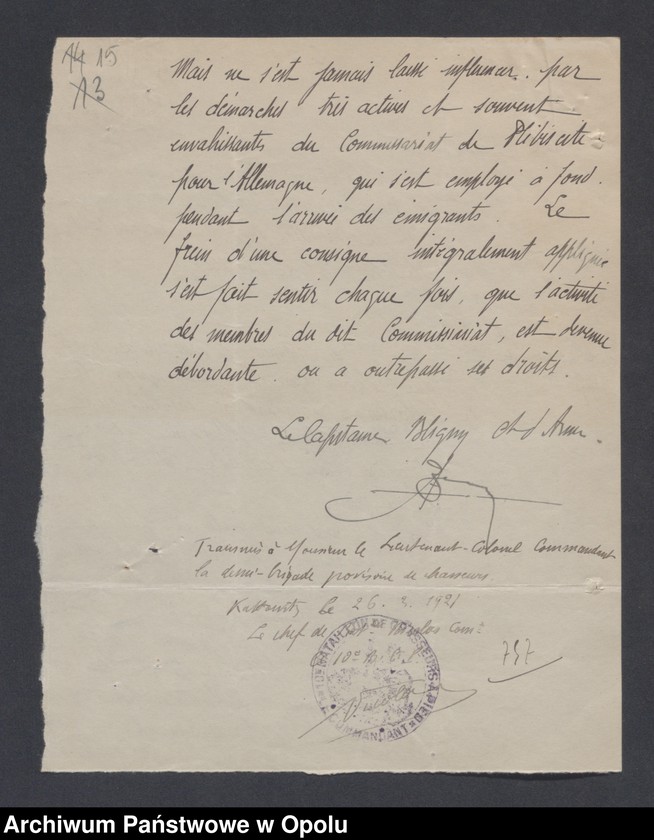 14 15
13
Mais ne s'est jamais laissé influencer. par
les démarches très actives et souvent
envahissants du Commissariat de Plébiscite
pour l'Allemagne, qui s'est employé à fond.
pendant l'arrivée des émigrants. Le
frein d'une consigne intégralement appliquée
s'est fait sentir chaque fois, que l'activité
des membres du dit Commissariat, est devenue
débordante. ou a outrepassé ses droits.
Le Capitaine Bligny
Transmis à Monsieur le Lieutenant-Colonel Commandant
la demi-brigade provisoire de chasseurs.
Kattowitz le 26. 3. 1921
Le chef de Comt
10e B. C.
BATAILLON DE CHASSEURS A PIED
COMMANDANT
737
Archiwum Państwowe w Opolu